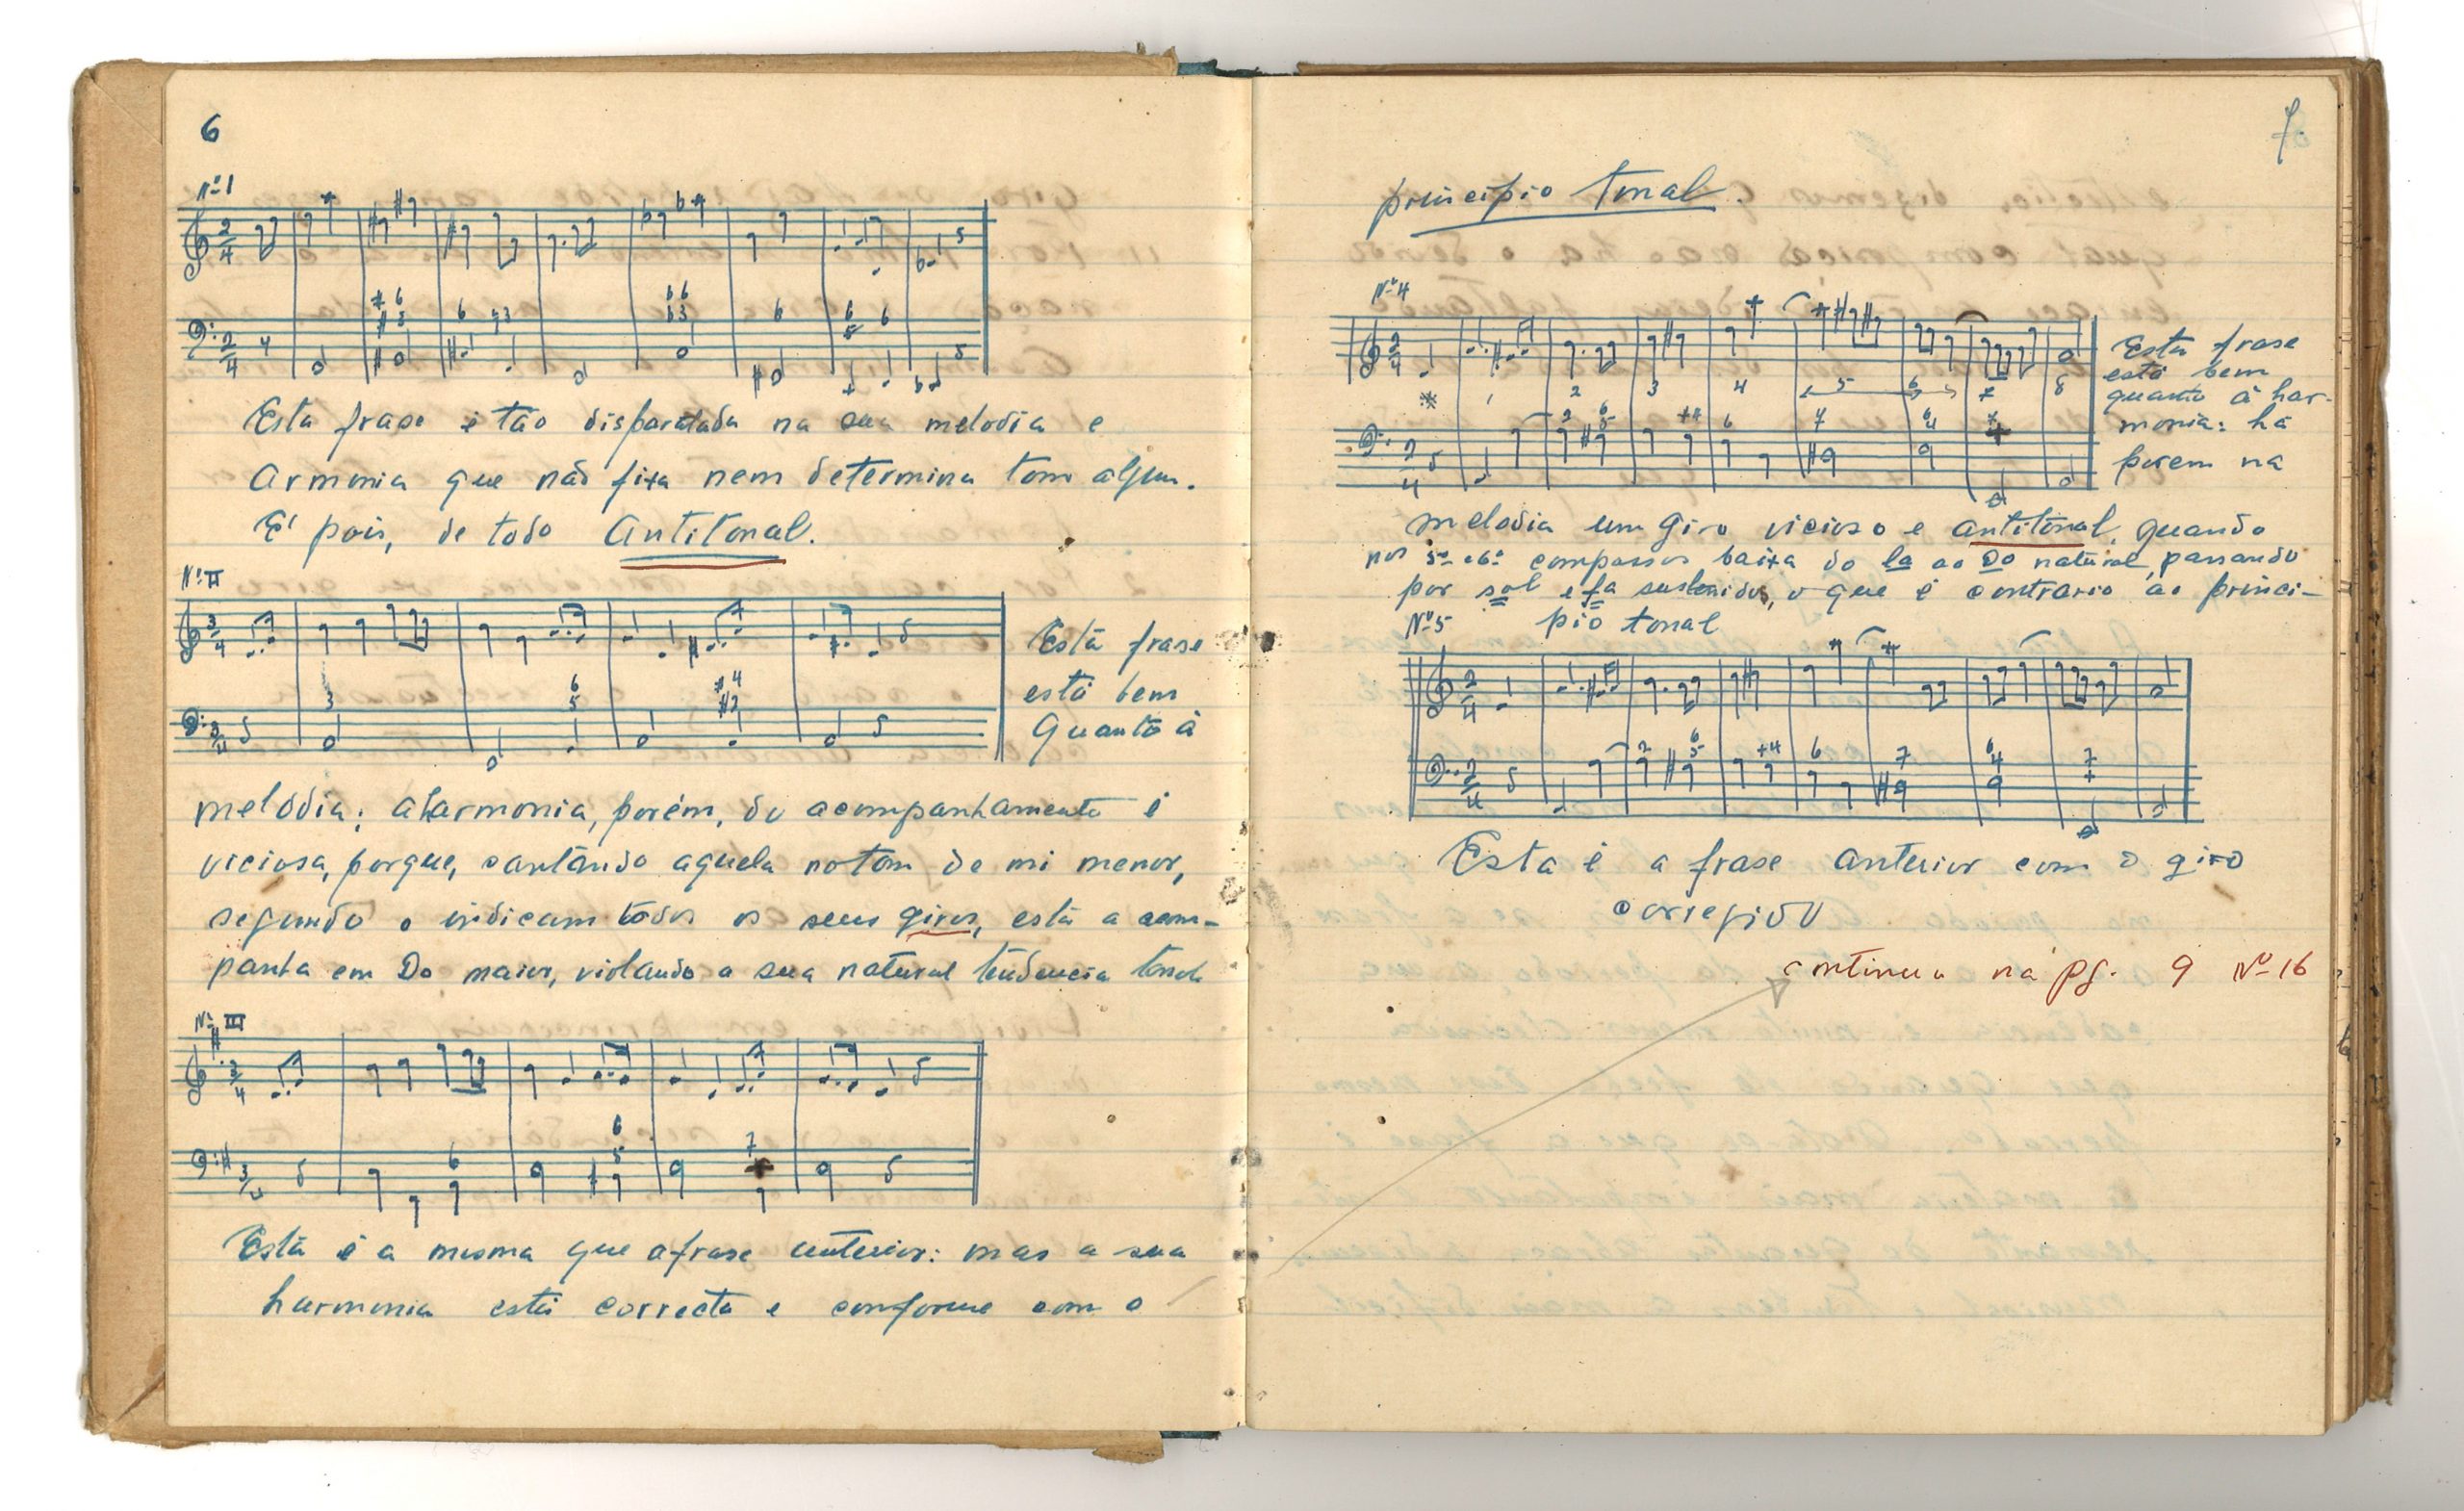 6
Nº 1
Esta frase é tão disparatada na sua melodia e
armonia que não fixa nem determina tom algum.
E' pois, de todo antitonal.
Nº II
Está frase
está bem
Quanto à
melódia; a harmonia, porém, do acompanhamento é
viciosa, porque, cantando aquela no tom de mi menor,
segundo o indicam todos os seus giros, está a acom-
panha em Do maior, violando a sua natural tendencia tonal
Nº III
Está é a mesma que a frase anterior: mas a sua
harmonia está correcta e conforme com o
7
principio tonal.
Nº 4
1 2 3 4 5 6 7 8
Esta frase
está bem
quanto à har-
monia: há
porem na
melodia um giro vicioso e antitonal, quando
nos 5º e 6º compassos baixa do la ao Do natural, passando
por sol e fa sustenidos, o que é contrario ao princi-
pio tonal
Nº 5
Esta é a frase anterior com o giro
corregido
continua na pg. 9 Nº 16